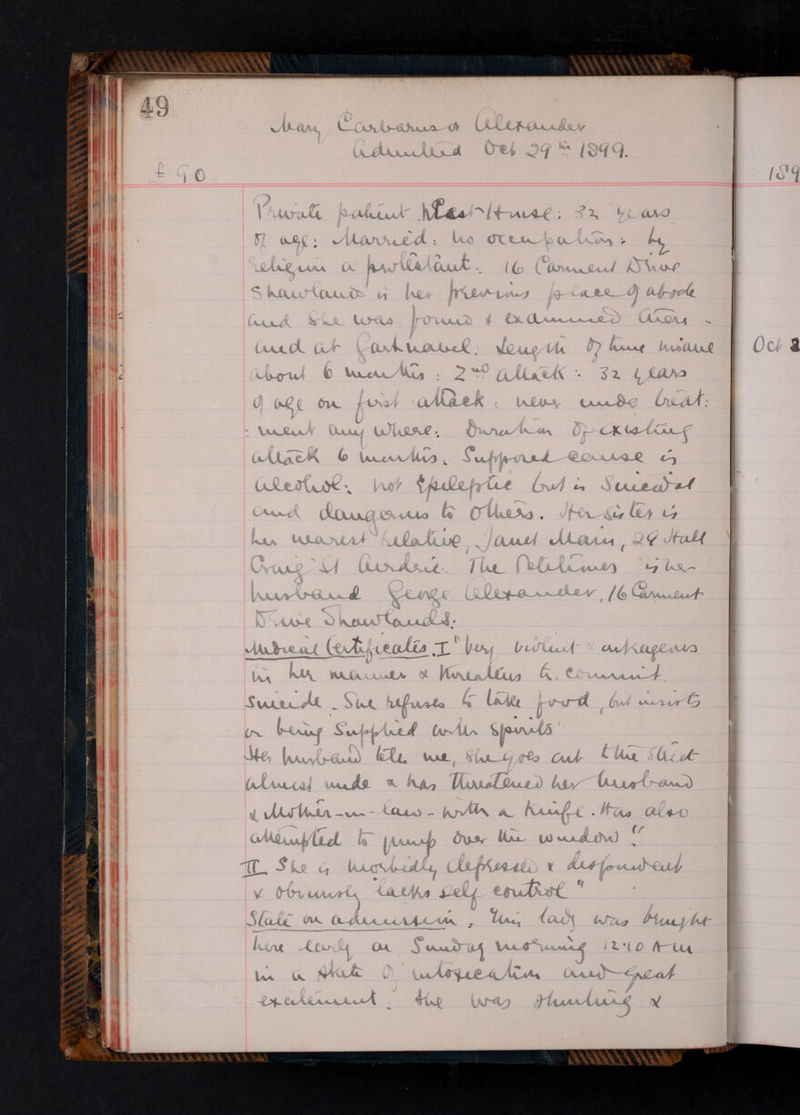 49
Mary Barbara or Alexander
Admitted Oct 29th 1899.
£90
189
Private patient West House: 32 years
of age: Married: no occupation: by
religion a protestant. 16 Carment Drive
Shawlands is her previous place of abode
and she was found & examined there
and at Length of time insane
about 6 months: 2nd attack: 32 years
of age on first attack: never under treat:
:ment any where. Duration of existing
attack 6 months. Supposed cause is
alcohol: not Epileptic but is Suicidal
and dangerous to others. Her sister is
her nearest relative, Janet Main, 24 Hall
Craig St Airdrie. The Petitioner is her
husband George Alexander, 16 Carment
Drive Shawlands.
Medical Certificates. I "Very violent & outrageous
in her manner & threatens to commit
Suicide. She refuses to take food, but insists
on being supplied with Spirits
Her husband tells me, she goes out the Street
almost nude & has threatened her husband
& Mother-in-law - with a knife. Has also
attempted to jump over the window"
II. She is morbidly depressed & despondent
& obviously lacks self control"
State on admission. This lady was brought
here early on Sunday morning 12.10 A M
in a state of intoxication and great
excitement. She was shouting &
Oct